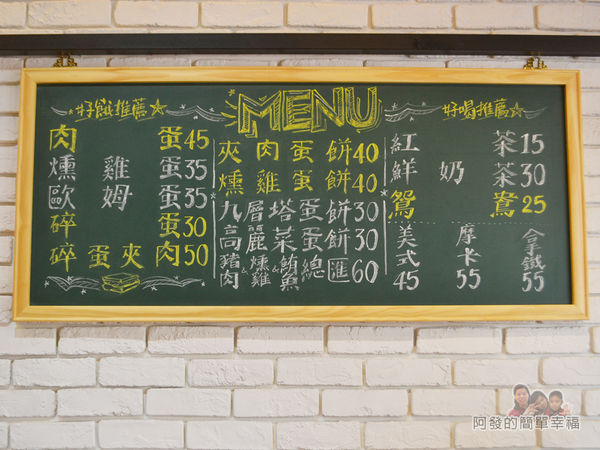 MENU
好飣推薦
肉蛋45
燻雞蛋35
歐姆蛋35
碎蛋30
碎蛋夾肉50
夾肉蛋餅40
燻雞蛋餅40
九層塔蛋餅30
高麗菜蛋餅30
豬肉&燻雞&鮪魚總匯60
好喝推薦
紅茶15
鮮奶茶30
鴛鴦25
美式45
摩卡55
拿鐵55
阿發的簡單幸福